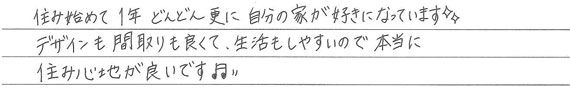 住み始めて1年 どんどん更に 自分の家が好きになっています✧✧
デザインも間取りも良くて、生活もしやすいので本当に
住み心地が良いです♬〃